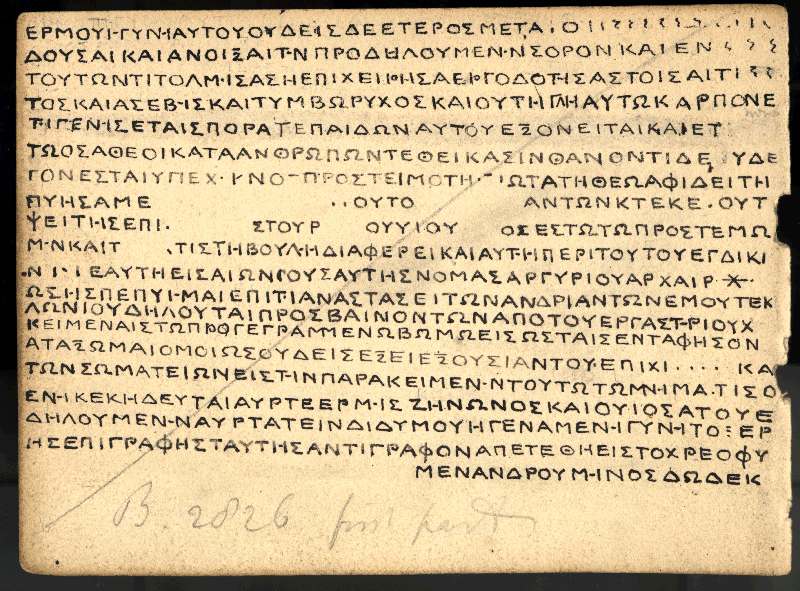 ΕΡΜΟΥΙ·ΓΥΝ·ΙΑΥΤΟΥΟΥΔΕΙΣΔΕΕΤΕΡΟΣΜΕΤΑ.Ο
ΔΟΥΣΑΙΚΑΙΑΝΟΙΞΑΙΤ·ΝΠΡΟΔΗΛΟΥΜΕΝ·ΝΣΟΡΟΝΚΑΙΕΝ
ΤΟΥΤΩΝΤΙΤΟΛΜ·ΙΣΑΣΗΕΠΙΧΕΙΡΗΣΑΕΡΓΟΔΟΤ·ΙΣΑΣΤΟΙΣΑΙΤΙ
ΤΟΣΚΑΙΑΣΕΒ·ΙΣΚΑΙΤΥΜΒΩΡΥΧΟΣΚΑΙΟΥΤΗΓΗΑΥΤΩΚΑΡΠΟΝΕ
Τ·ΙΓΕΝ·ΙΣΕΤΑΙΣΠΟΡΑΤΕΠΑΙΔΩΝΑΥΤΟΥΕΞΟΝΕΙΤΑΙΚΑΙΕΤ
ΤΩΟΣΑΘΕΟΙΚΑΤΑΑΝΘΡΩΠΩΝΤΕΘΕΙΚΑΣΙΝΘΑΝΟΝΤΙΔΕ ΥΔΕ
ΓΟΝΕΣΤΑΙΥΠΕΧ ΠΡΟΣΤΕΙΜΟΤΗ ΙΩΤΑΤΗΘΕΩΑΦΙΔΕΙΤΗ
ΠΥΗΣΑΜΕ ..ΟΥΤΟ ΑΝΤΩΝΚΤΕΚΕ.ΟΥΤ
ΨΕΙΤΗΣΕΠΙ. ΣΤΟΥΡ ΟΥΥΙΟΥ ΟΣΕΣΤΩΤΩΠΡΟΣΤΕΜΩ
Μ·ΝΚΑΙΤ .ΤΙΣΤΗΒΟΥΛΗΔΙΑΦΕΡΕΙΚΑΙΑΥΤ·ΗΠΕΡΙΤΟΥΤΟΥΕΓΔΙΚΙ
ΕΑΥΤΗΕΙΣΑΙΩΝΙΟΥΣΑΥΤΗΣΝΟΜΑΣΑΡΓΥΡΙΟΥΑΡΧΑΙΡ
ΩΣΗΣΠΕΠΥΙ·ΜΑΙΕΠΙΤΙΑΝΑΣΤΑΣΕΙΤΩΝΑΝΔΡΙΑΝΤΩΝΕΜΟΥΤΕΚ
ΛΩΝΙΟΥΔΗΛΟΥΤΑΙΠΡΟΣΒΑΙΝΟΝΤΩΝΑΠΟΤΟΥΕΡΓΑΣΤ·ΡΙΟΥΧ
ΚΕΙΜΕΝΑΙΣΤΩΠΡΟΓΕΓΡΑΜΜΕΝΩΒΩΜΩΕΙΣΩΣΤΑΙΣΕΝΤΑΦΗΣΟΝ
ΑΤΑΞΩΜΑΙΟΜΟΙΩΣΟΥΔΕΙΣΕΞΕΙΕΞΟΥΣΙΑΝΤΟΥ·ΕΠΙΧΙ.... ΚΑ
ΤΩΝΣΩΜΑΤΕΙΩΝΕΙΣΤ·ΙΝΠΑΡΑΚΕΙΜΕΝ·ΝΤΟΥΤΩΤΩΜΝ·ΙΜΑ.ΤΙΣΟ
ΕΝ·ΙΚΕΚΗΔΕΥΤΑΙΑΥΡΤΕΕΡΜ·ΙΣΖΗΝΩΝΟΣΚΑΙΟΥΙΟΣΑΤΟΥΕ
ΔΗΛΟΥΜΕΝ·ΝΑΥΡΤΑΤΕΙΝΔΙΔΥΜΟΥΗΓΕΝΑΜΕΝ·ΙΓΥΝ·ΙΤΟ:ΕΡ
ΗΣΕΠΙΓΡΑΦΗΣΤΑΥΤΗΣΑΝΤΙΓΡΑΦΟΝΑΠΕΤΕΘΗΕΙΣΤΟΧΡΕΟΦΥ
ΜΕΝΑΝΔΡΟΥΜ·ΙΝΟΣΔΩΔΕΚ
B. 2826 first part